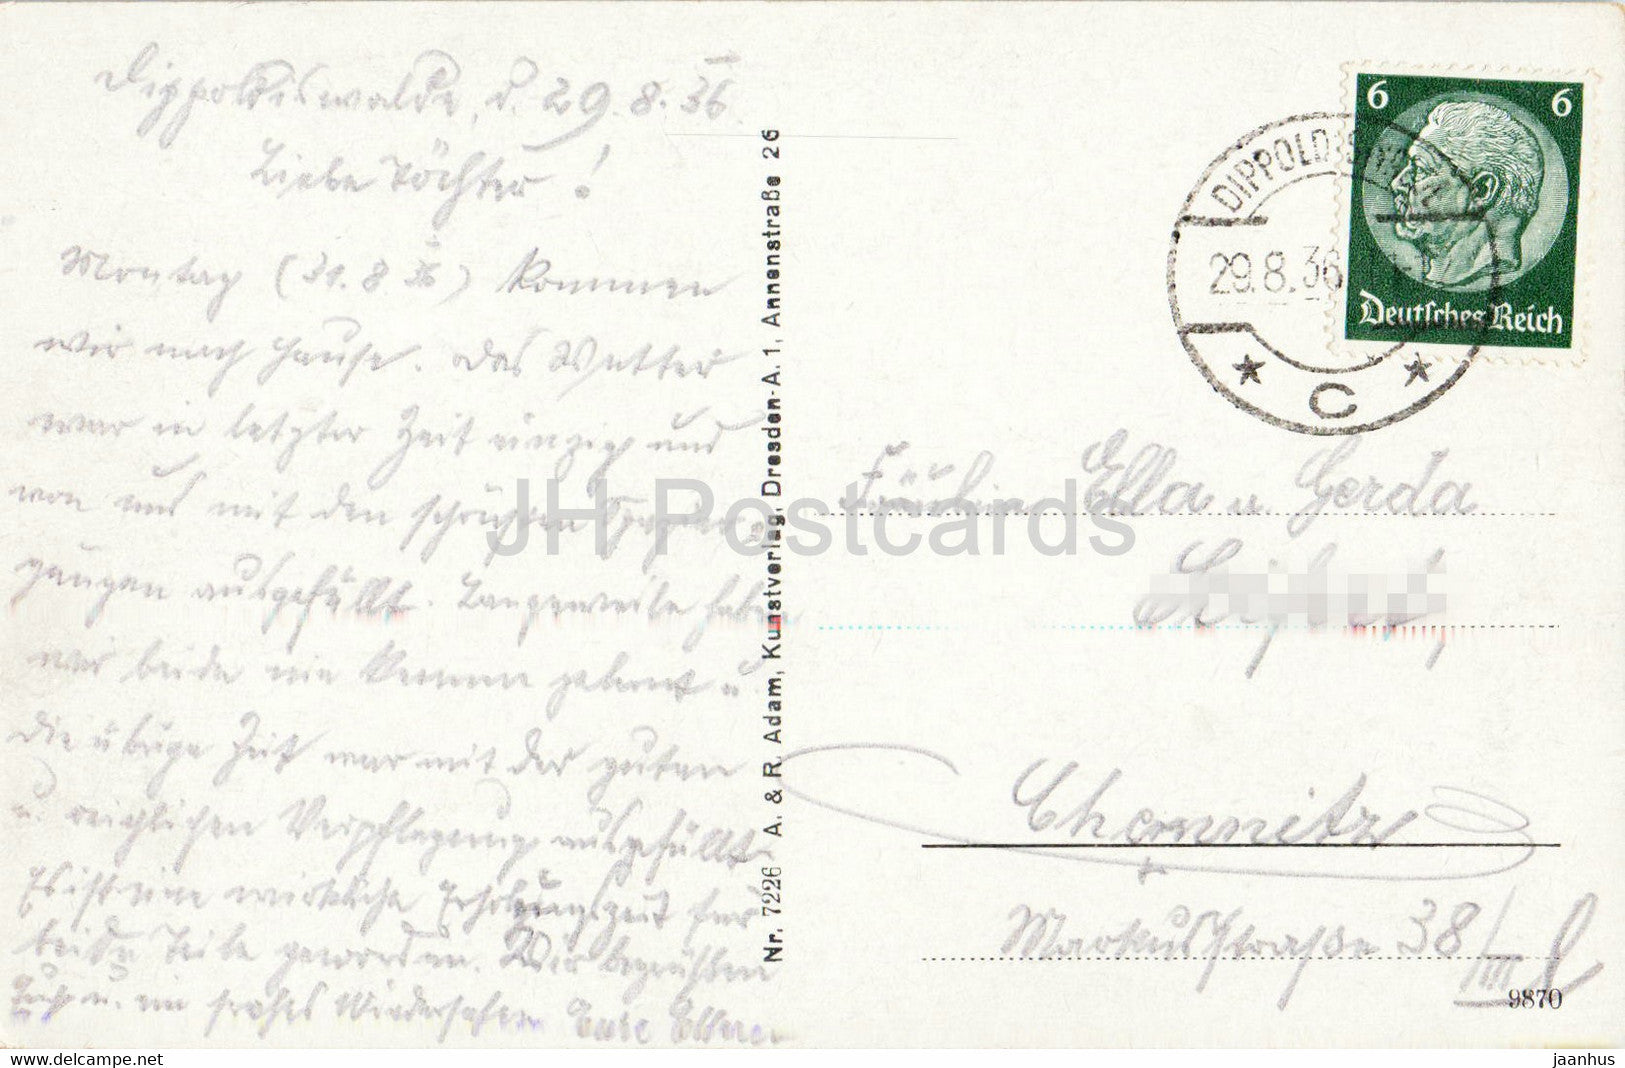 Dippoldiswalde, d. 29.8.36.
Liebe Töchter!
Montag (31.8.36) kommen
wir nach Hause. Das Wetter
war in letzter Zeit einzig und
von uns mit den schönsten Spazier-
gängen ausgefüllt. Langeweile haben
wir beide nie kennen gelernt u.
die übrige Zeit war mit der guten
u. reichlichen Verpflegung ausgefüllt.
Es ist eine wirkliche Erholungszeit für
beide Teile geworden. Wir begrüßen
Euch u. ein frohes Wiedersehen Eure Eltern
Nr. 7226 A. & R. Adam, Kunstverlag, Dresden-A. 1, Annenstraße 26
6 6
Deutsches Reich
DIPPOLDISWALDE
29.8.36
C
Fräulein Ella u. Gerda
Chemnitz
Markusstraße 38/III
9870
JH Postcards
https://www.delcampe.net
jaanhus